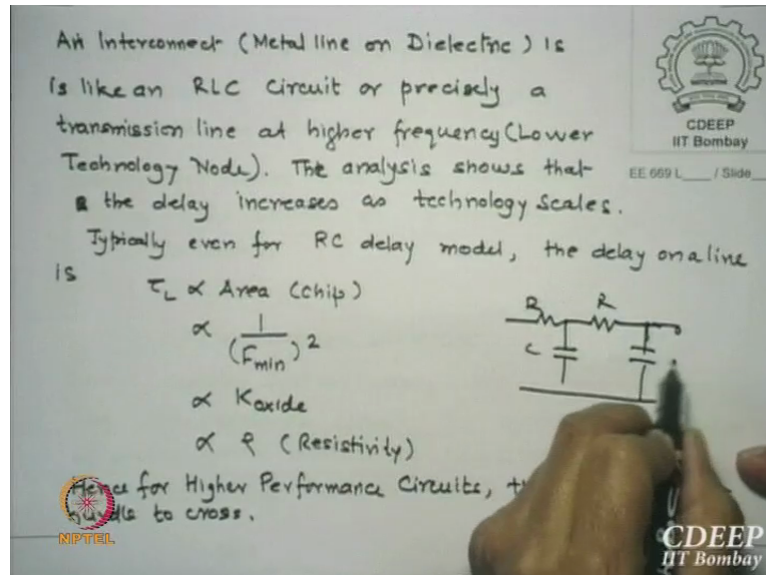 An Interconnect (Metal line on Dielectric) is
is like an RLC Circuit or precisely a
transmission line at higher frequency (Lower
Technology Node). The analysis shows that
the delay increases as technology scales.
Typically even for RC delay model, the delay on a line
is
τL ∝ Area (chip)
∝ 1/(Fmin)²
∝ Koxide
∝ ρ (Resistivity)
R R
C
Hence for Higher Performance Circuits,
hurdle to cross.
CDEEP
IIT Bombay
EE 669 L___ / Slide
NPTEL
CDEEP
IIT Bombay